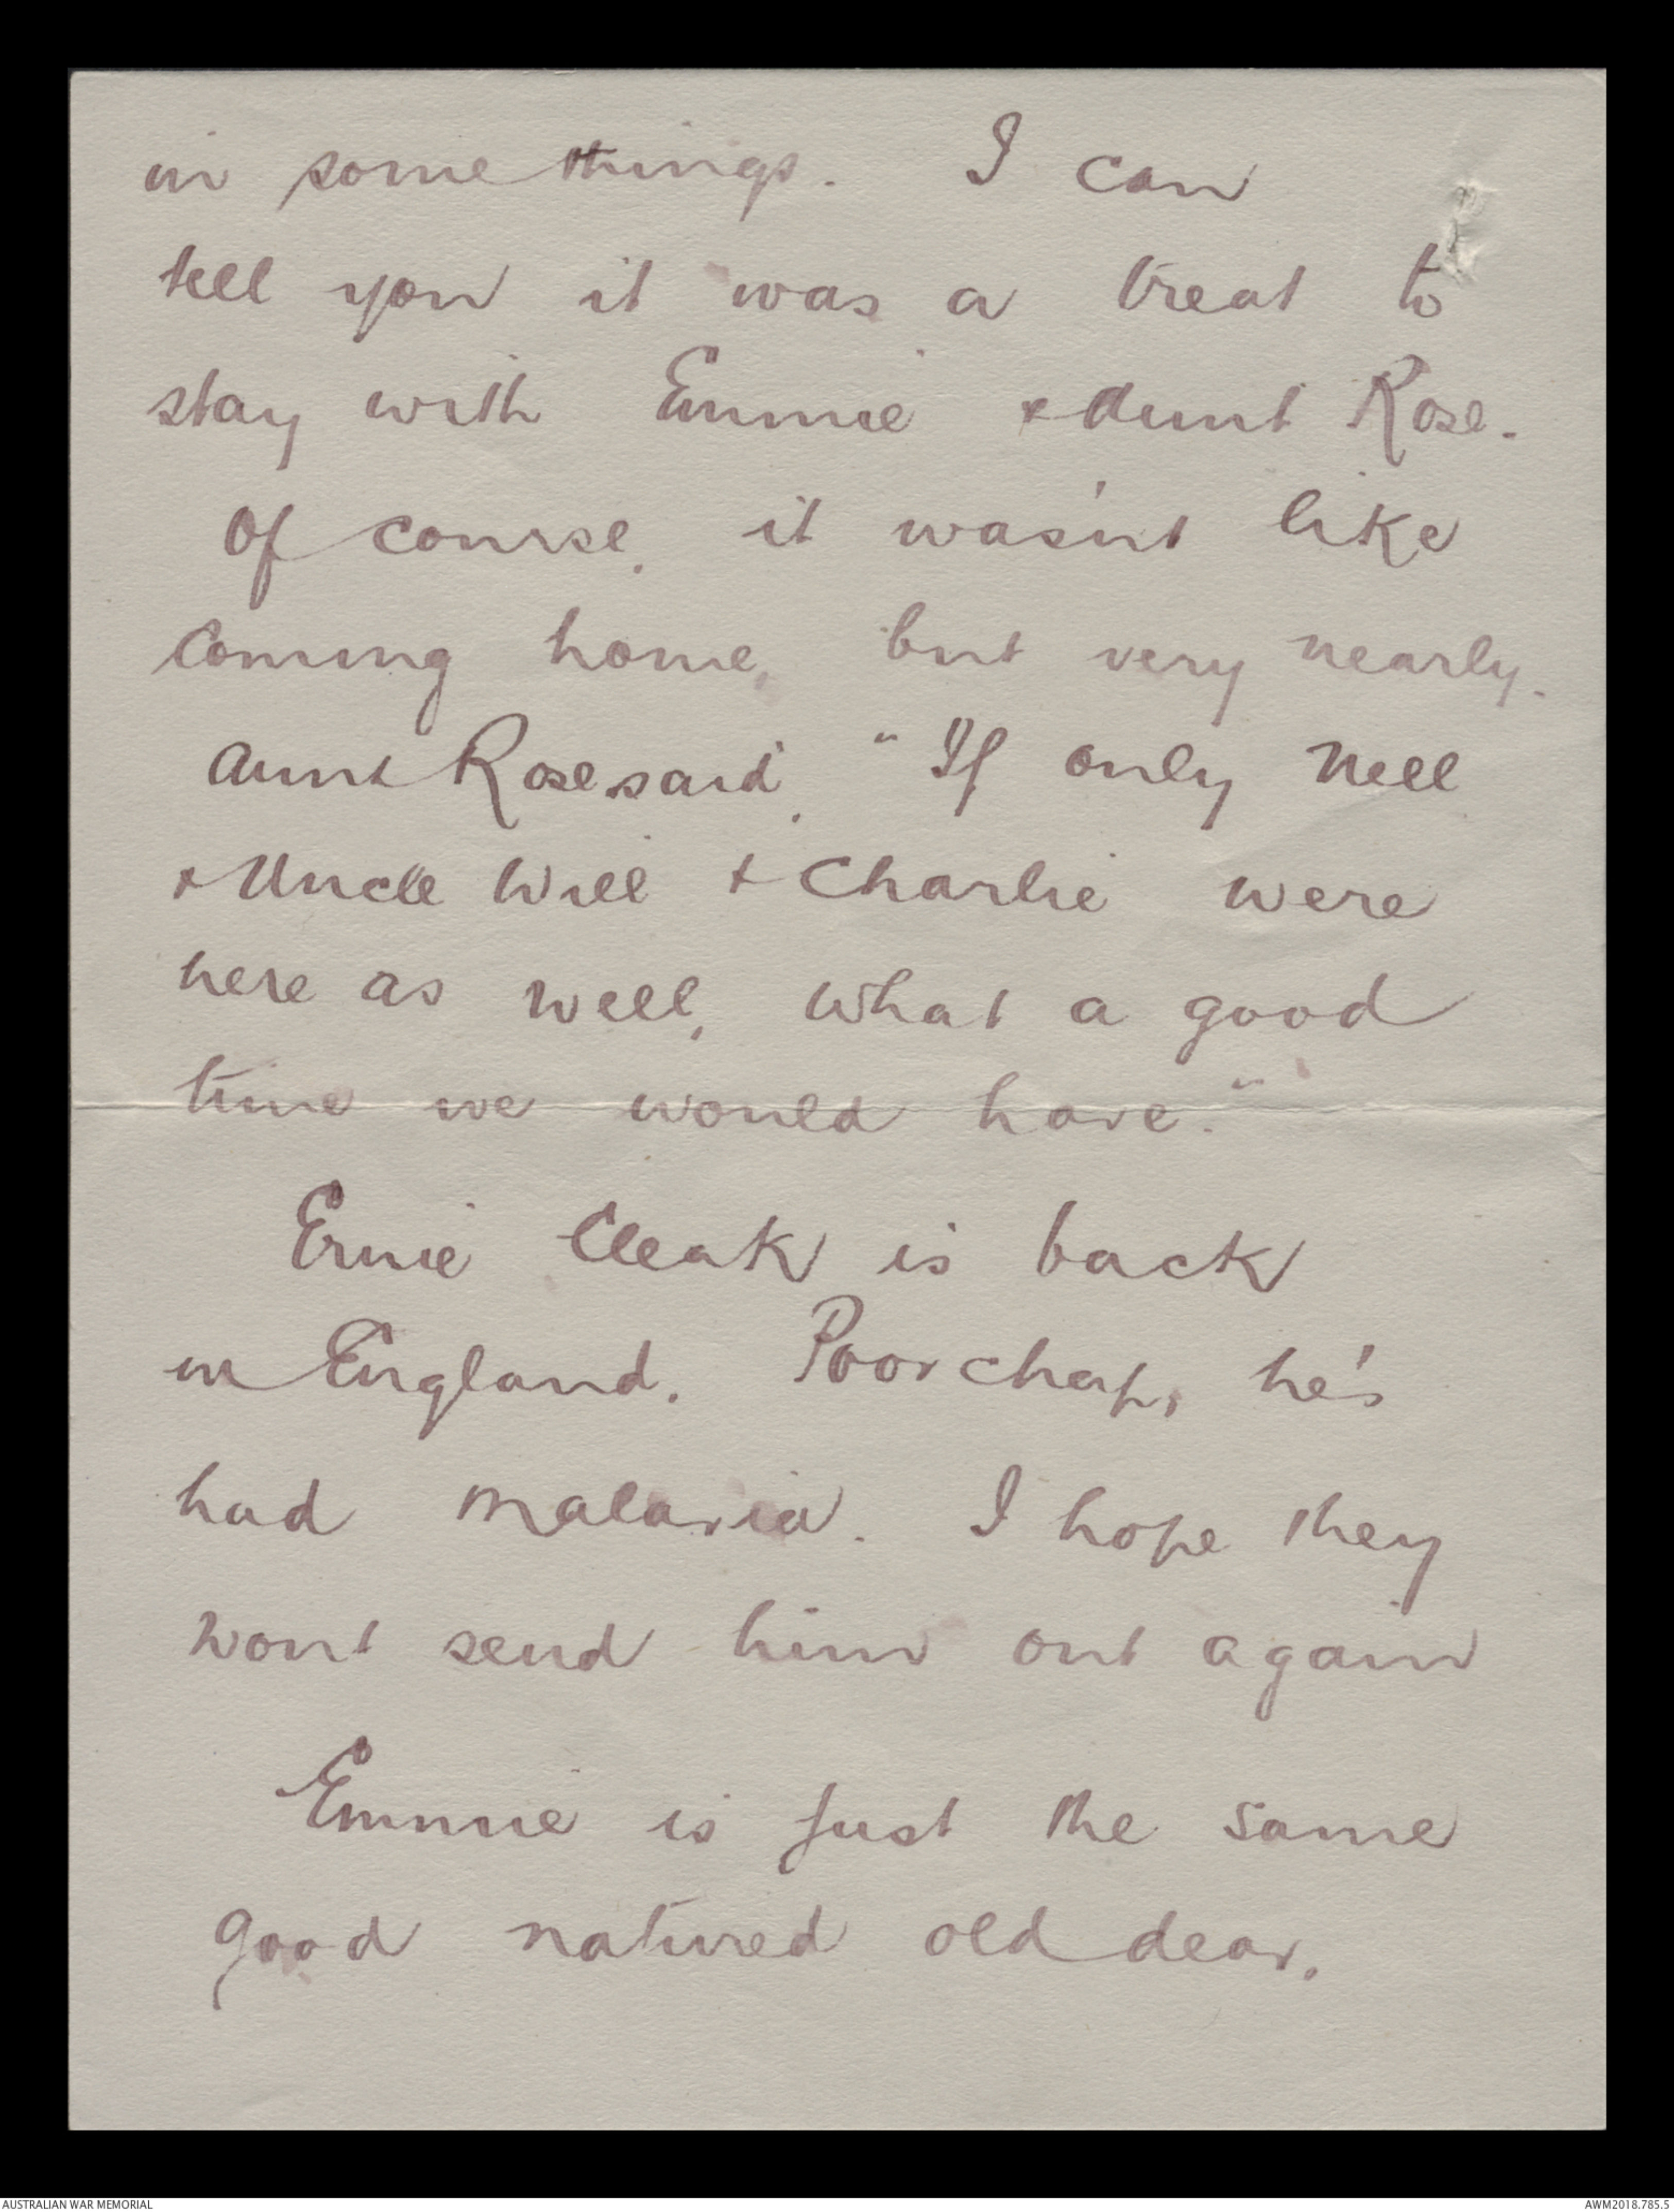 in some things. I can
tell you it was a treat to
stay with Emmie & Aunt Rose.
Of course, it wasn't like
coming home, but very nearly.
Aunt Rose said, "If only Nell
& Uncle Will & Charlie were
here as well, what a good
time we would have."
Ernie Cleak is back
in England. Poor chap, he's
had malaria. I hope they
wont send him out again
Emmie is just the same
good natured old dear.
AUSTRALIAN WAR MEMORIAL
AWM2018.785.5